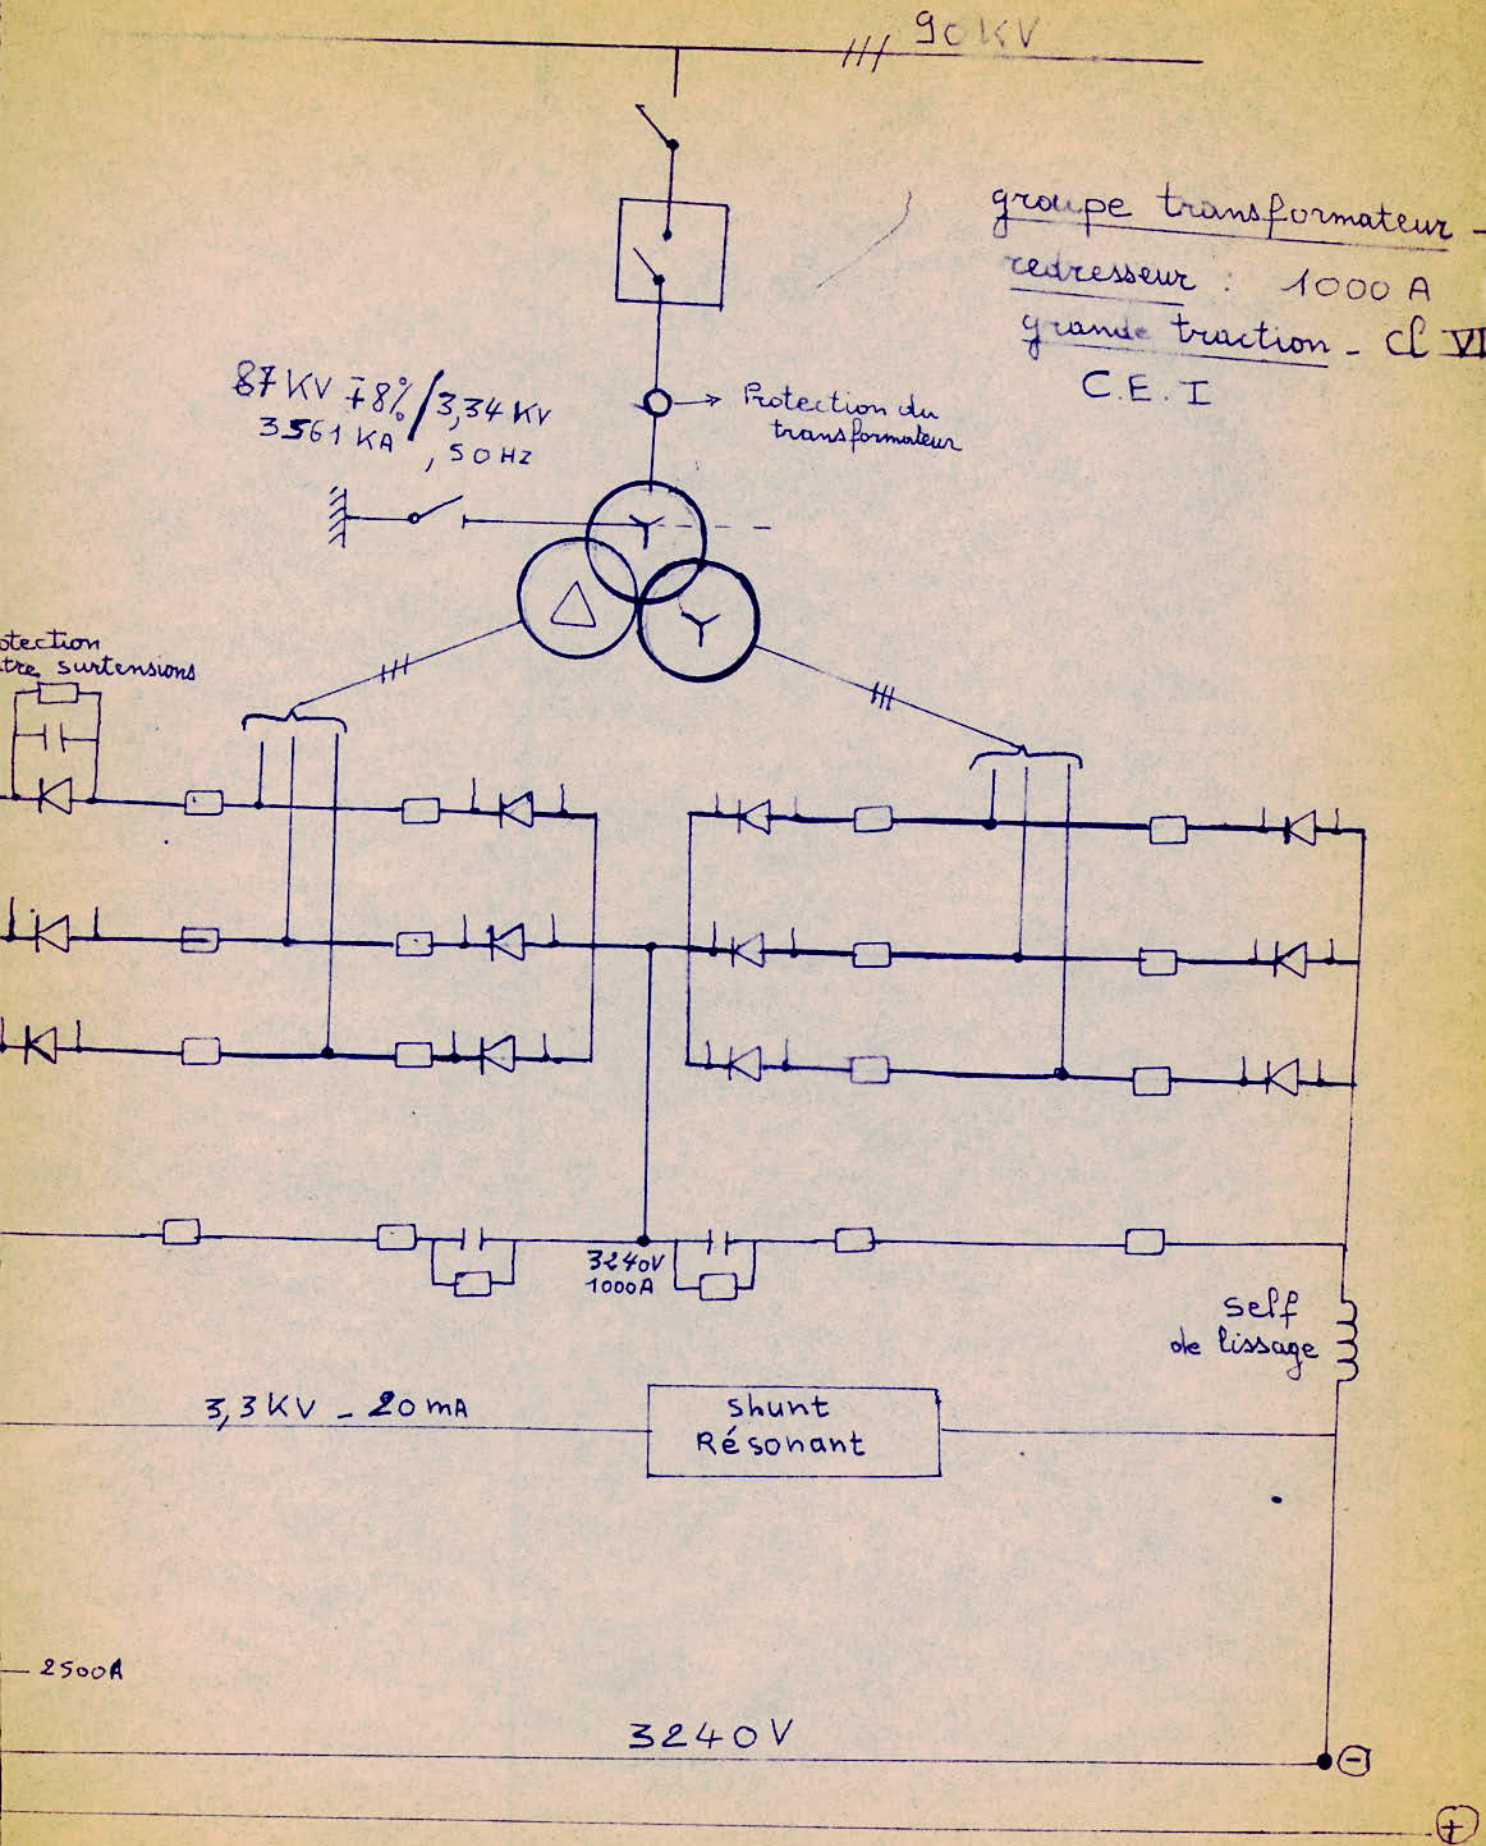 90 KV
groupe transformateur -
redresseur : 1000 A
grande traction - Cl VI
C.E.I
87 KV ∓8% / 3,34 KV
3561 KA , 50 HZ
→ Protection du
transformateur
otection
tre surtensions
3240V
1000A
self
de lissage
3,3 KV - 20 mA
shunt
Résonant
2500A
3240V
-
+